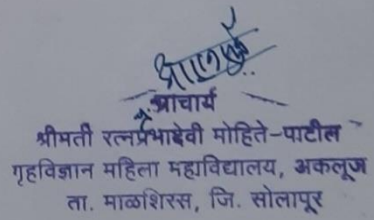 प्राचार्य
श्रीमती रत्नप्रभादेवी मोहिते-पाटील
गृहविज्ञान महिला महाविद्यालय, अकलूज
ता. माळशिरस, जि. सोलापूर